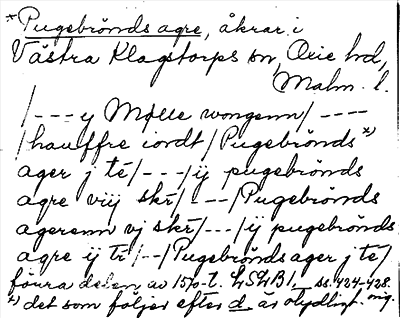 *Pugebrönds agre, åkrar i
Västra Klagstorps sn, Oxie hd,
Malm. l.
/--- y Mølle wongenn/----
/hauffre iordt/Pugebrönds*)
ager j té/---/ij pugebrönds
agre viij skr/--/Pugebrönds
agerenn vj skr/---/ij pugebrönds
agre ij tr/--/Pugebrönds ager j té/
förra delen av 1570-t. LSLB1 ss. 424-428.
*) det som följer efter d är otydligt.